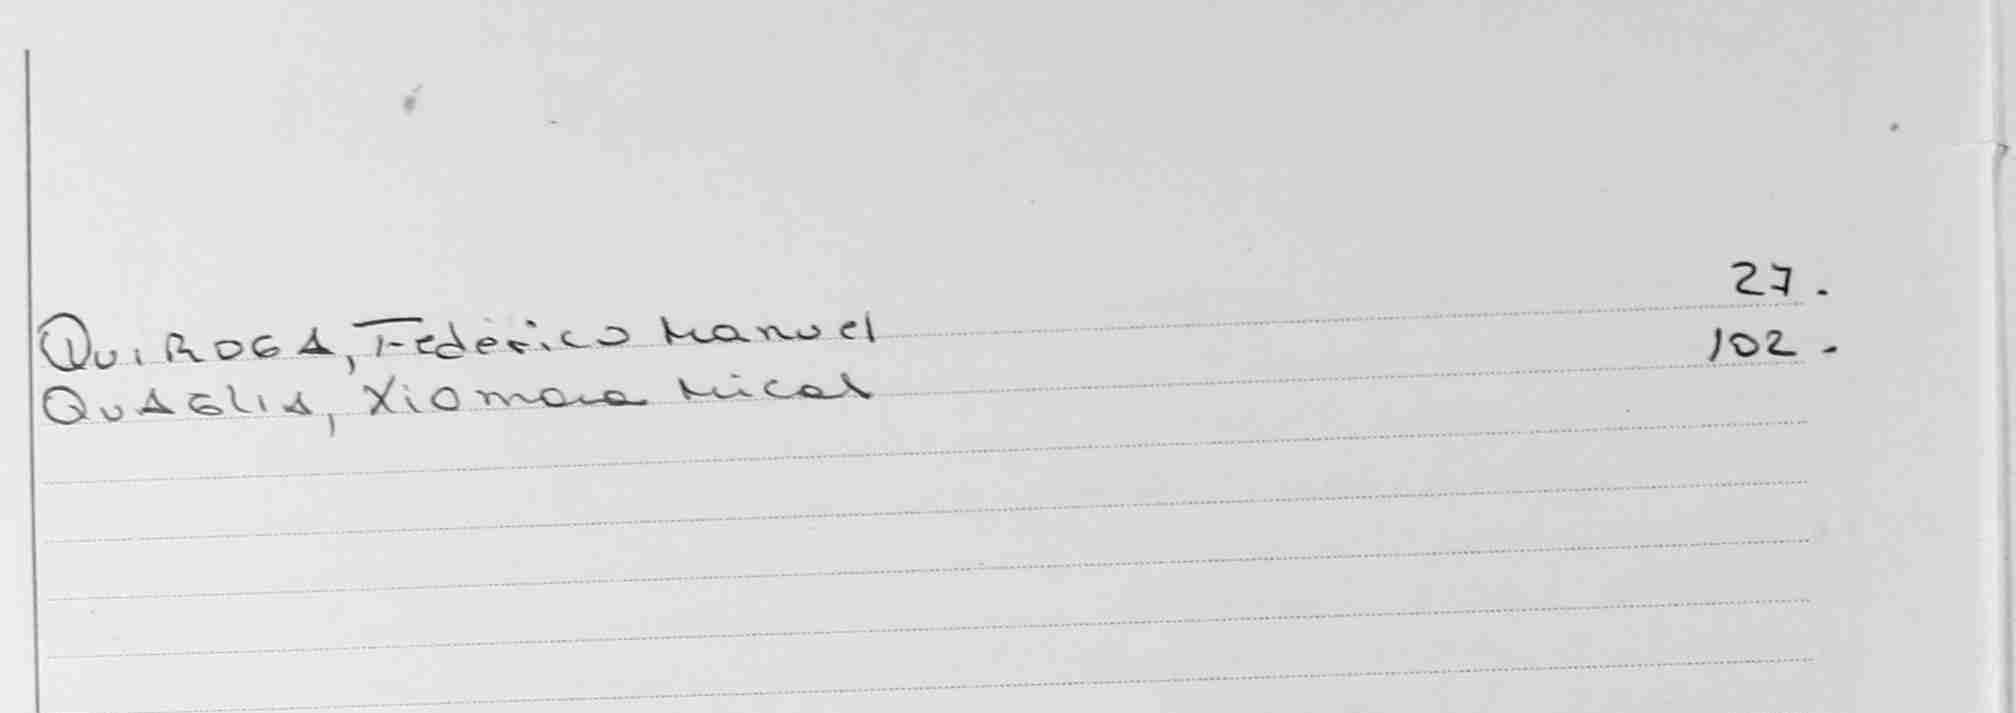 QUIROGA, Federico Manuel 27.
QUAGLIA, Xiomara Mical 102.